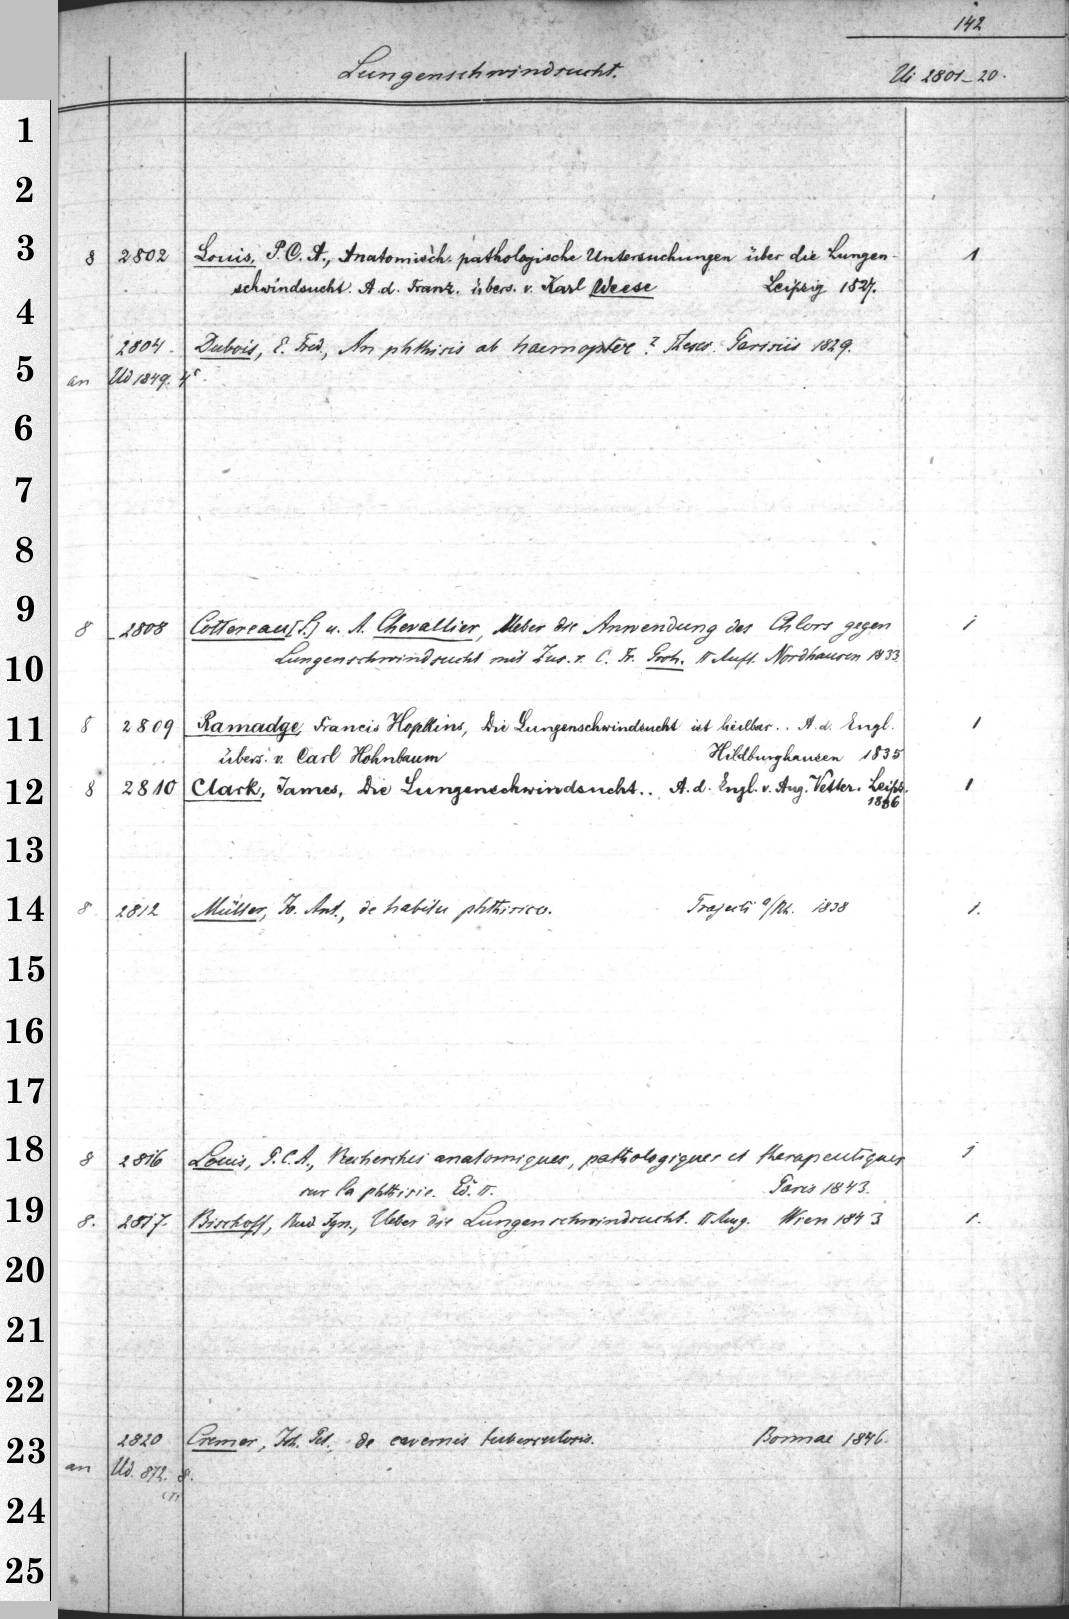 142
Lungenschwindsucht.
Ui 2801–20.
1
2
3
8 2802 Louis, P. C. A., Anatomisch. pathologische Untersuchungen über die Lungen- 1
schwindsucht. A. d. Franz. übers. v. Karl Weese Leipzig 1827.
4
2804. Dubois, E. Fred., An phthisis ab haemoptoe? Theses. Parisiis 1829.
5
an Ud 1849. 4°.
6
7
8
9
8 2808 Cottereau [P.] u. A. Chevallier, Ueber die Anwendung des Chlors gegen 1
Lungenschwindsucht mit Zus. v. C. Fr. Groh. II Aufl. Nordhausen 1833.
10
11
8 2809 Ramadge, Francis Hopkins, Die Lungenschwindsucht ist heilbar.. A. d. Engl. 1
übers. v. Carl Hohnbaum Hildburghausen 1835
12
8 2810 Clark, James, Die Lungenschwindsucht.. A. d. Engl. v. Aug. Vetter. Leipz. 1
1836
13
14
8 2812 Müller, Jo. Ant., de habitu phthisico. Trajecti a/Rh. 1838 1.
15
16
17
18
8 2816 Louis, P. C. A., Recherches anatomiques, pathologiques et therapeutiques 1
sur la phthisie. Ed. II. Paris 1843.
19
8. 2817. Bischoff, Rud. Ign., Ueber die Lungenschwindsucht. II Ausg. Wien 1843 1.
20
21
22
2820 Cremer, Joh. Pet., de cavernis tuberculosis. Bonnae 1846.
23
an Ud. 872. 8.
24
25